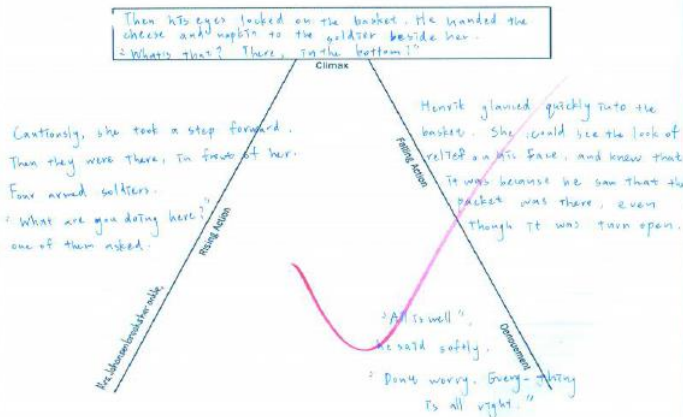 Then his eyes locked on the basket. He handed the
cheese and napkin to the soldier beside her.
"What's that? There, in the bottom?"
Climax
Cautiously, she took a step forward.
Then they were there, in front of her.
Four armed soldiers.
"What are you doing here?"
one of them asked.
Rising Action
Mrs. Johansen breaks her ankle.
Henrik glanced quickly into the
basket. She could see the look of
relief on his face, and knew that
it was because he saw that the
packet was there, even
though it was torn open.
Falling Action
"All is well",
he said softly.
"Don't worry. Every-thing
is all right."
Denouement